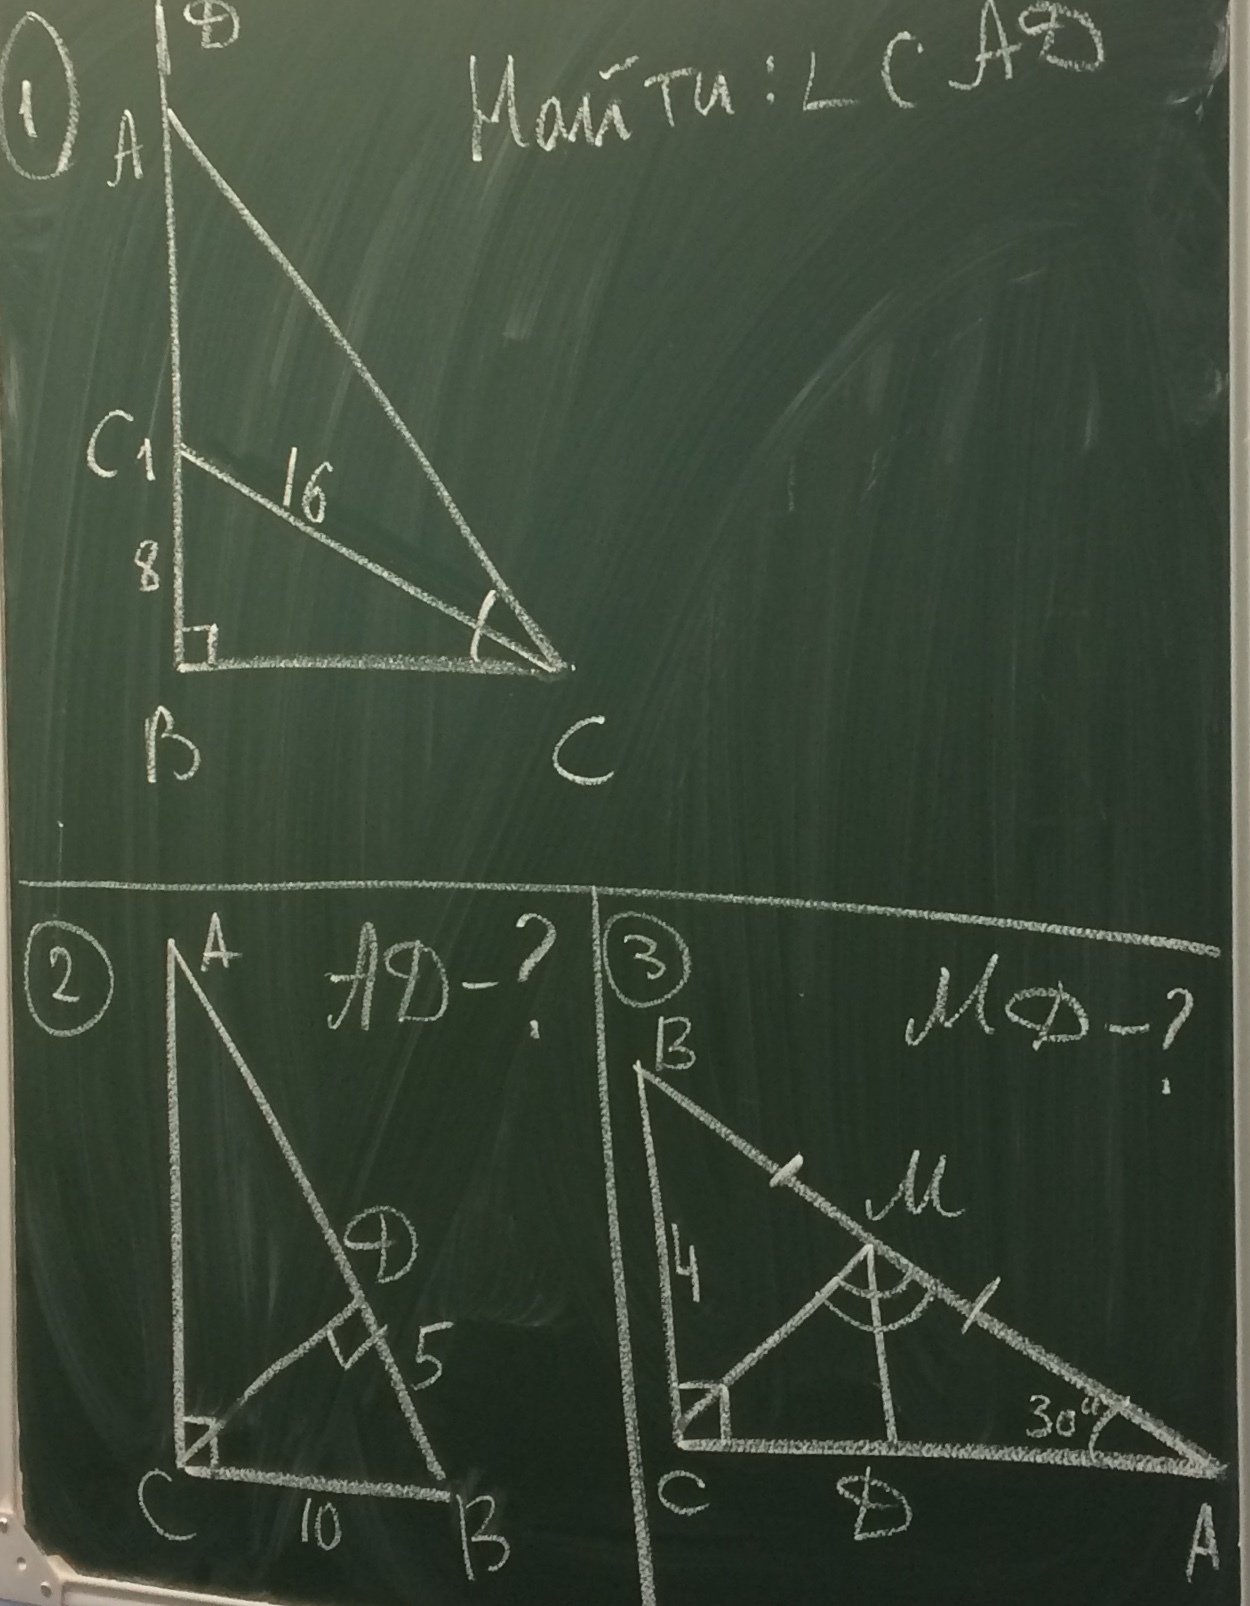 1
D
Найти: ∠CAD
A
C1
16
8
B
C
2
A
AD-?
D
5
C
10
B
3
MD-?
B
M
4
30°
C
D
A